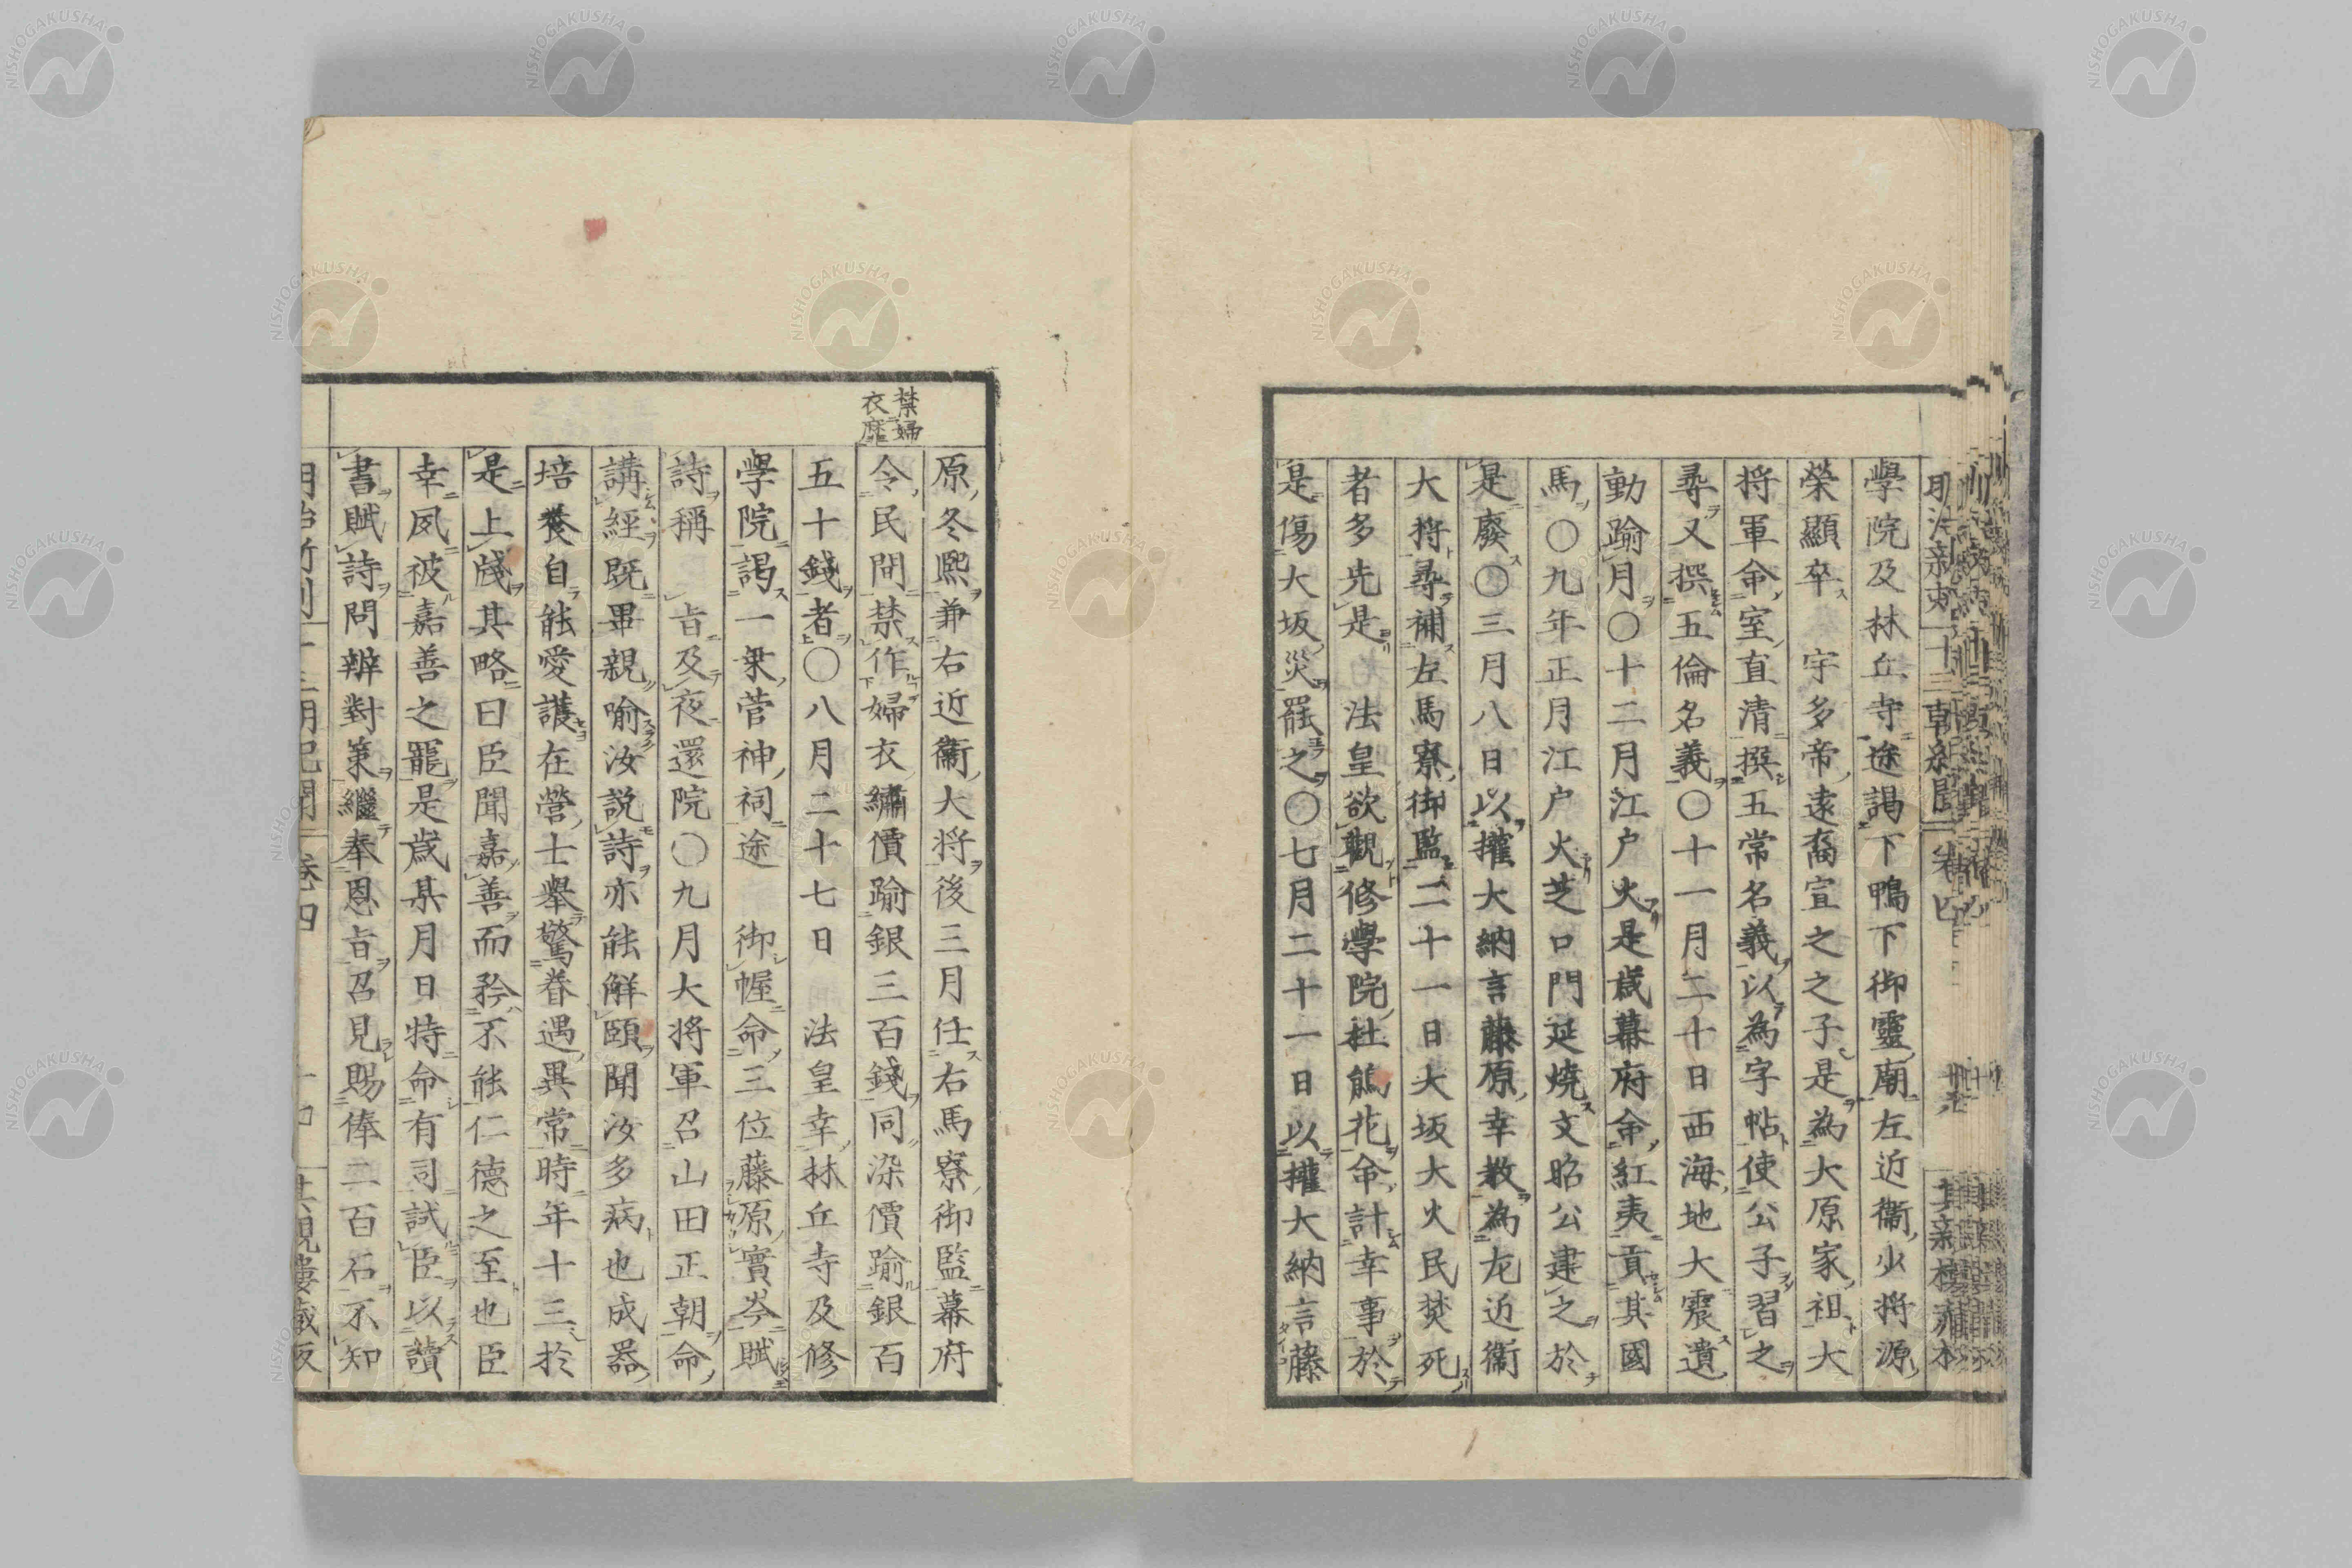 學院及林丘寺途謁下鴨下御靈廟左近衞少將源
榮顯卒 宇多帝遠裔宣之之子是為大原家祖大
将軍命室直清撰五常名義以為字帖使公子習之
尋又撰五倫名義〇十一月二十日西海地大震遺
動踰月〇十二月江户火是歲幕府命紅夷貢其國
馬〇九年正月江户火芝口門延燒文昭公建之於
是廢〇三月八日以權大納言藤原幸教為左近衞
大将尋補左馬寮御監二十一日大坂大火民焚死
者多先是 法皇欲觀修學院杜鵑花命計幸事於
是傷大坂災罷之〇七月二十一日以權大納言藤
禁婦
衣靡
原冬熙兼右近衞大将後三月任右馬寮御監幕府
令民間禁作婦衣繡價踰銀三百錢同染價踰銀百
五十錢者〇八月二十七日 法皇幸林丘寺及修
學院謁一乗菅神祠途 御幄命三位藤原實岑賦
詩稱 旨及夜還院〇九月大将軍召山田正朝命
講經既畢親喻汝説詩亦能解頤聞汝多病也成器
培養自能愛護在營士舉驚眷遇異常時年十三於
是上牋其略曰臣聞嘉善而矜不能仁德之至也臣
幸夙被嘉善之寵是歲某月日特命有司試臣以讀
書賦詩問辨對策繼奉恩旨召見賜俸二百石不知